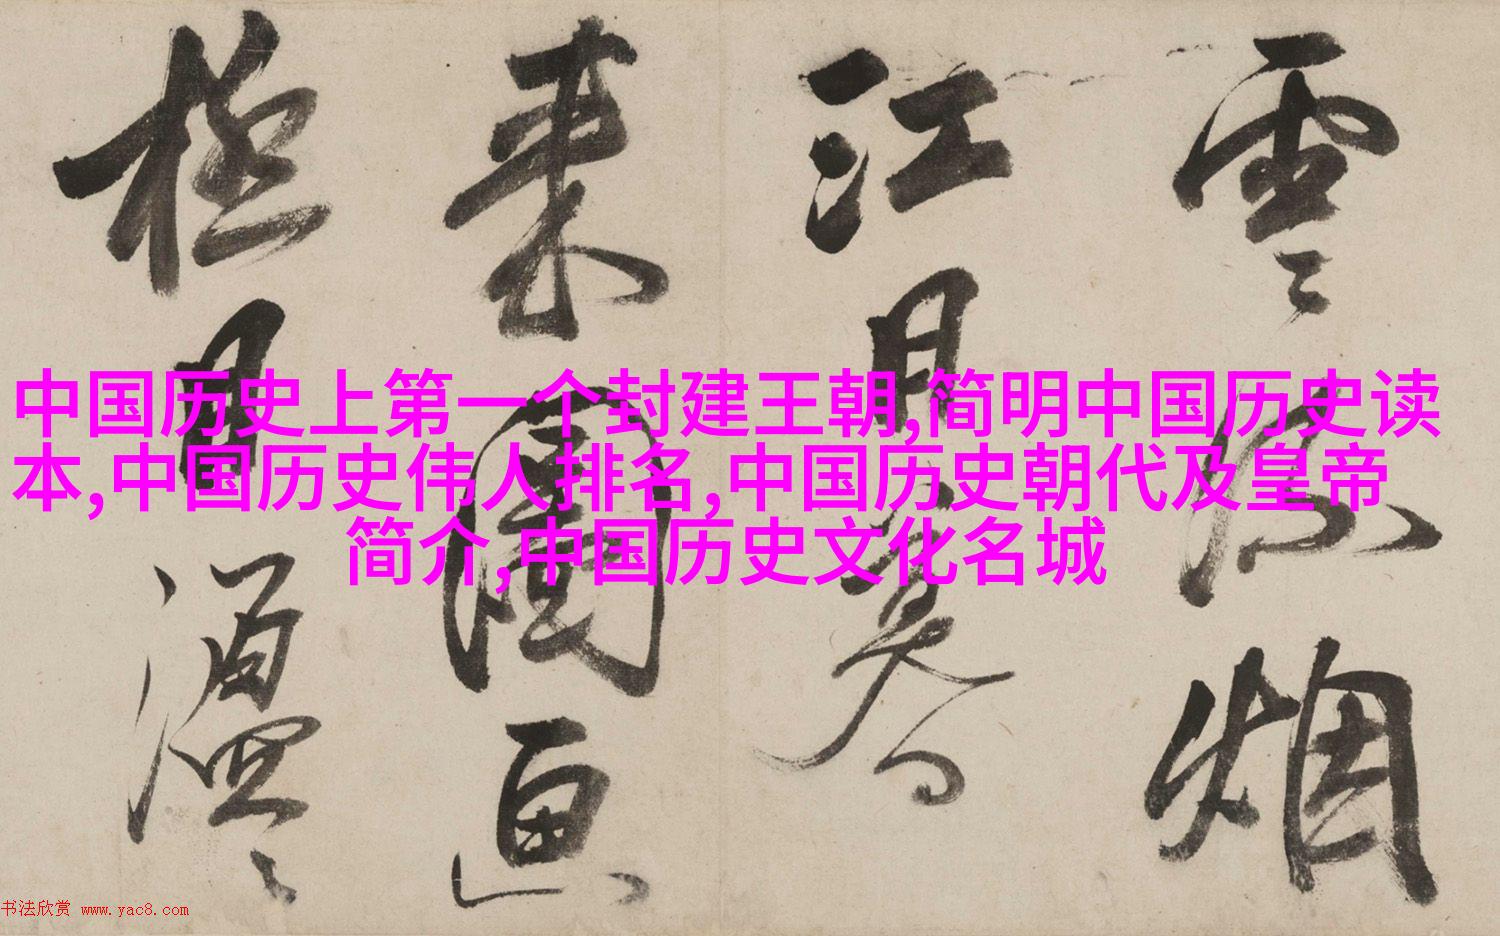 中国历史上第一个封建王朝,简明中国历史读
本,中国历史伟人排名,中国历史朝代及皇帝
简介,中国历史文化名城
雲〻烟
江月
来圖画
極目
书法欣赏 www.yac8.com